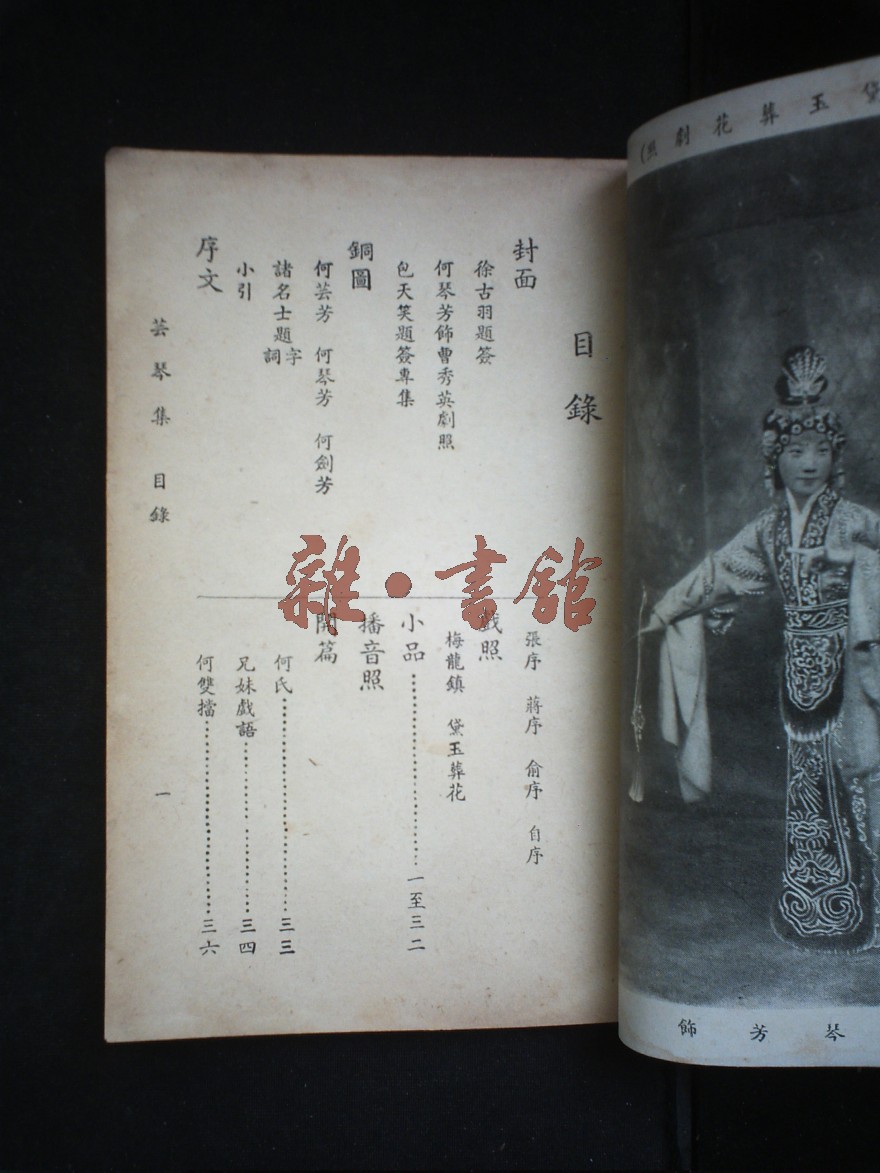 目錄
封面
徐古羽題簽
何琴芳飾曹秀英劇照
包天笑題簽專集
銅圖
何芸芳 何琴芳 何劍芳
諸名士題字詞
小引
序文
張序 蔣序 俞序 自序
戲照
梅龍鎮 黛玉葬花
小品……一至三二
播音照
開篇
何氏……三三
兄妹戲語……三四
何雙擋……三六
芸琴集 目錄
一
黛玉葬花劇照)
琴芳飾
雜·書館